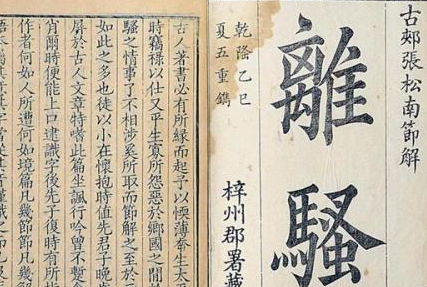 古郟張松南節解
離騷
乾隆乙巳
夏五重鐫
梓州郡署藏
古人著書必有所緣而起予以愞薄幸生太
時竊祿以仕又平生寡所怨惡於鄉國之間
騷之情事了不相涉奚所取而節解之至於
如此之多也徒以小在懷抱時值先君子晚歲
屏於古人文章特嗜此篇坐諷行吟曾不暫
肖爾時便能上口逮識字後先子復時有所指
作者何如人所遭何如境篇凡幾節節凡幾解